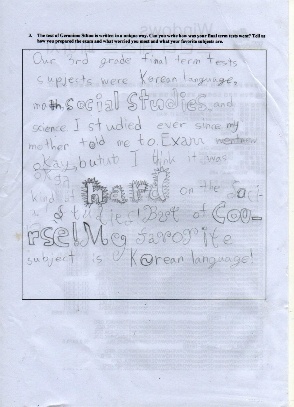 3. The test of Geronimo Stilton is written in a unique way. Can you write how was your final term tests went? Tell us
how you prepared the exam and what worried you most and what your favorite subjects are.
Our 3rd grade final term tests
cupjects were Korean language,
math, social Studies and
science I studied ever since my
mother told me to. Exam
okay, but I think it was
kind hard on the Soci-
Studies! But of Cou-
rse! My favorite
subject is Korean language!